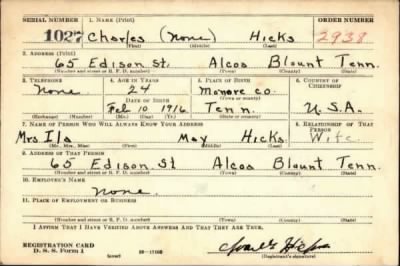 SERIAL NUMBER 1. NAME (Print) ORDER NUMBER
1027 Charles (None) Hicks 2938
(First) (Middle) (Last)
2. ADDRESS (Print)
65 Edison St. Alcoa Blount Tenn.
(Number and street or R. F. D. number) (Town) (County) (State)
3. TELEPHONE 4. AGE IN YEARS 5. PLACE OF BIRTH 6. COUNTRY OF CITIZENSHIP
None 24 Monore co.
DATE OF BIRTH (Town or county)
Feb 10 1916 Tenn. U.S.A.
(Exchange) (Number) (Mo.) (Day) (Yr.) (State or country)
7. NAME OF PERSON WHO WILL ALWAYS KNOW YOUR ADDRESS 8. RELATIONSHIP OF THAT PERSON
Mrs Ila May Hicks Wife
(Mr., Mrs., Miss) (First) (Middle) (Last)
9. ADDRESS OF THAT PERSON
65 Edison St Alcoa Blount Tenn.
(Number and street or R. F. D. number) (Town) (County) (State)
10. EMPLOYER'S NAME
None
11. PLACE OF EMPLOYMENT OR BUSINESS
(Number and street or R. F. D. number) (Town) (County) (State)
I AFFIRM THAT I HAVE VERIFIED ABOVE ANSWERS AND THAT THEY ARE TRUE.
REGISTRATION CARD
D. S. S. Form 1 (over) Charles Hicks
(Registrant's signature)